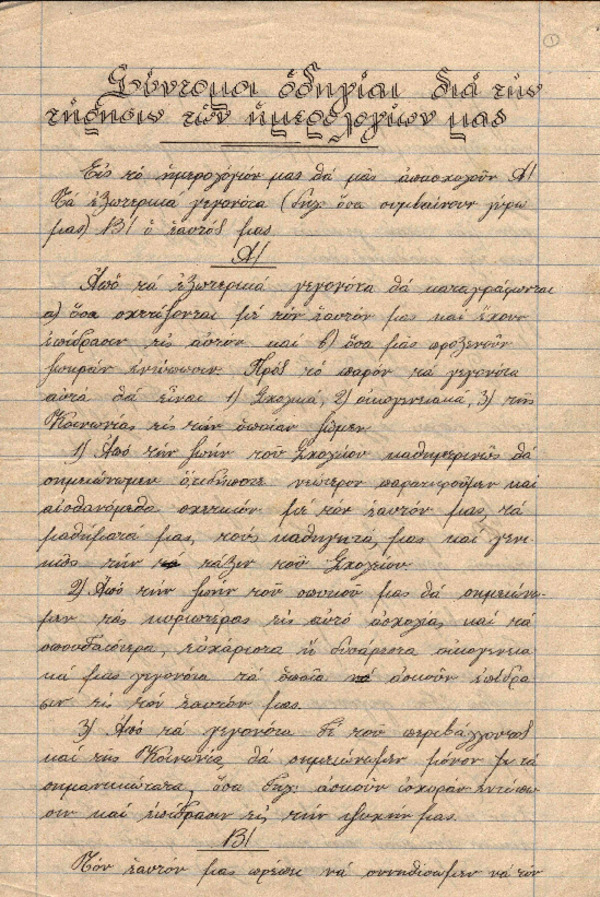 1
Σύντομοι ὁδηγίαι διὰ τὴν
τήρησιν τῶν ἡμερολογίων μας
Εἰς τὸ ἡμερολόγιόν μας θὰ μᾶς ἀπασχολοῦν Α/
Τὰ ἐξωτερικὰ γεγονότα (δηλ. ὅσα συμβαίνουν γύρω
μας) Β/ ὁ ἑαυτός μας
Α/
Ἀπὸ τὰ ἐξωτερικὰ γεγονότα θὰ καταγράφωνται
α) ὅσα σχετίζονται μὲ τὸν ἑαυτόν μας καὶ ἔχουν
ἐπίδρασιν εἰς αὐτὸν καὶ β) ὅσα μᾶς προξενοῦν
ζωηρὰν ἐντύπωσιν. Πρὸς τὸ παρὸν τὰ γεγονότα
αὐτὰ θὰ εἶναι 1) Σχολικά, 2) οἰκογενειακά, 3) τῆς
Κοινωνίας εἰς τὴν ὁποίαν ζῶμεν
1) Ἀπὸ τὴν ζωὴν τοῦ Σχολείου καθημερινῶς θὰ
σημειώνωμεν ὅ,τιδήποτε νεώτερον παρατηροῦμεν καὶ
αἰσθανόμεθα σχετικὸν μὲ τὸν ἑαυτόν μας, τὰ
μαθήματά μας, τοὺς καθηγητάς μας καὶ γενι
κῶς τὴν τάξιν τοῦ Σχολείου
2) Ἀπὸ τὴν ζωὴν τοῦ σπιτιοῦ μας θὰ σημειώνω-
μεν τὰς κυριωτέρας εἰς αὐτὸ ἀσχολίας καὶ τὰ
σπουδαιότερα, εὐχάριστα ἢ δυσάρεστα οἰκογενεια
κά μας γεγονότα τὰ ὁποῖα ἀσκοῦν ἐπίδρα
σιν εἰς τὸν ἑαυτόν μας.
3) Ἀπὸ τὰ γεγονότα δὲ τοῦ περιβάλλοντος
καὶ τῆς Κοινωνίας θὰ σημειώνωμεν μόνον τὰ
σημαντικώτατα, ὅσα δηλ. ἀσκοῦν ἰσχυρὰν ἐντύπω
σιν καὶ ἐπίδρασιν εἰς τὴν ψυχήν μας.
Β/
Τὸν ἑαυτόν μας πρέπει νὰ συνηθίσωμεν νὰ τὸν